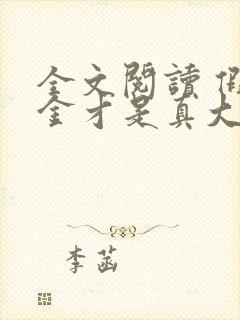 全文閱讀 假
全才是真大
李菡